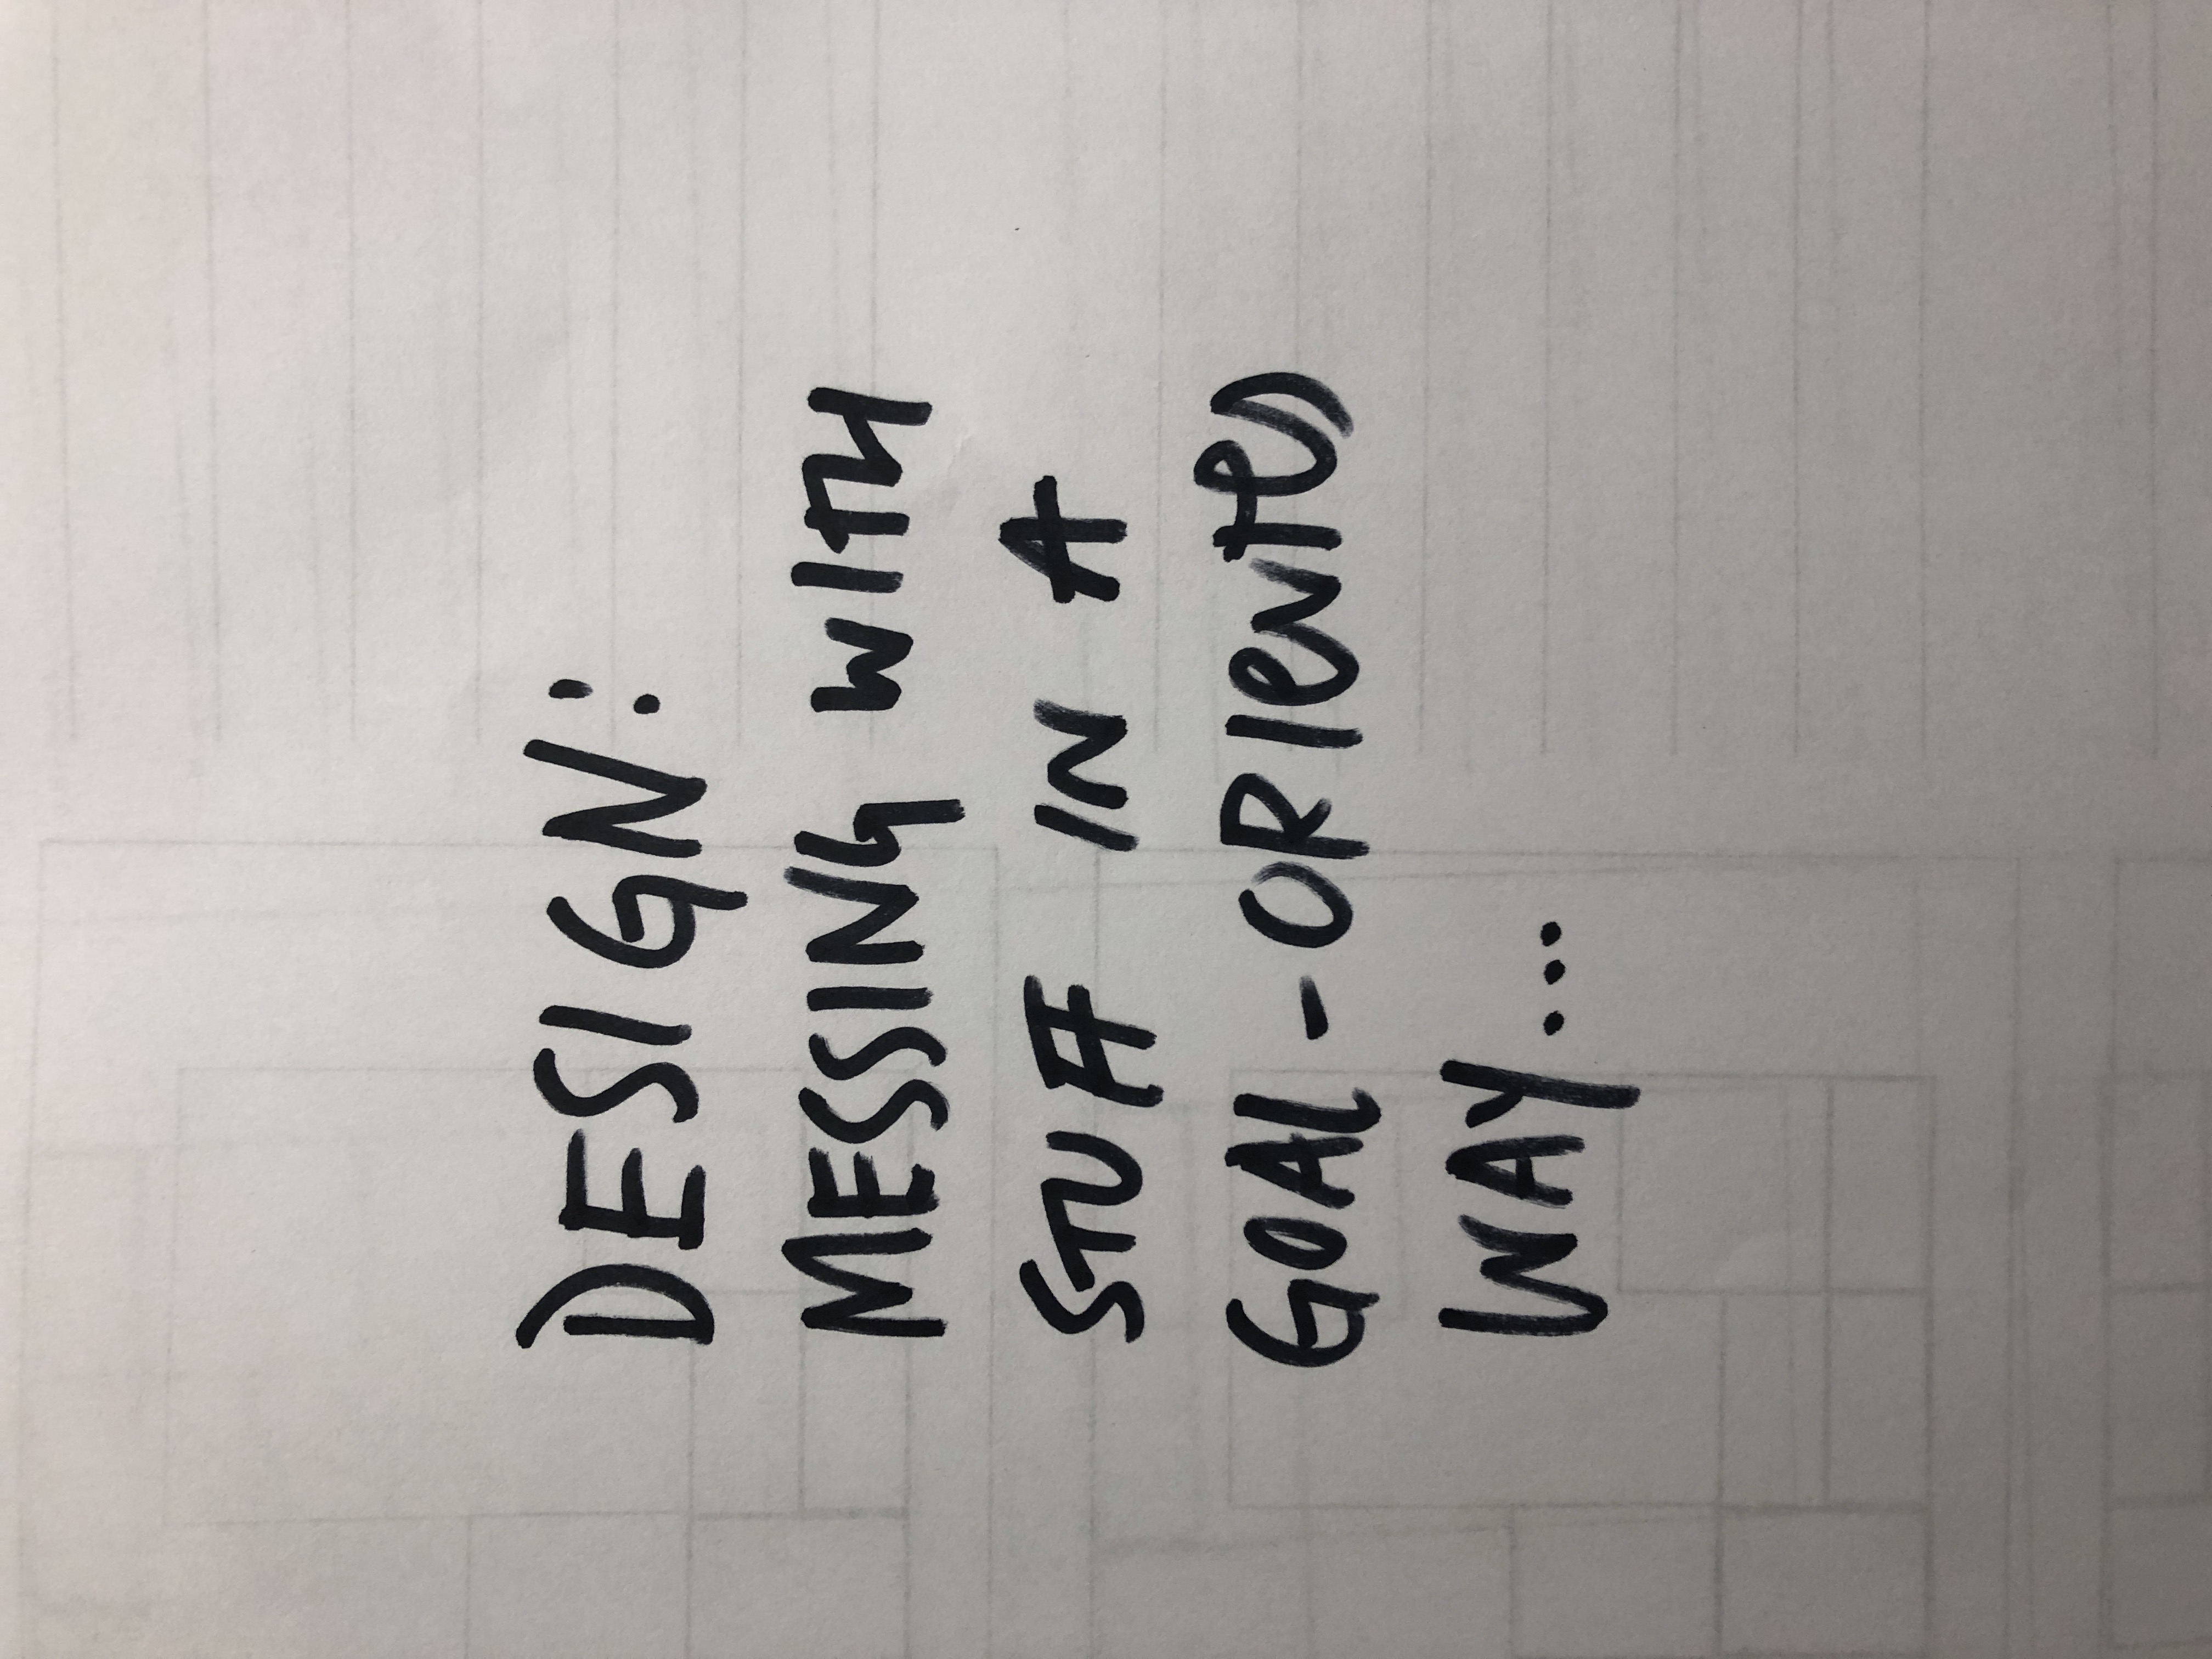 DESIGN:
MESSING WITH
STUFF IN A
GOAL-ORIENTED
WAY...